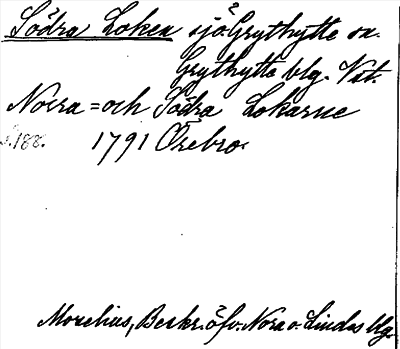 Södra Loken sjö i Grythytte sn.
Grythytte blg. Vstm.
Norra = och Södra Lokarne
s. 188. 1791 Örebro.
Morelius, Beskr. öfv. Nora o. Lindes blg.